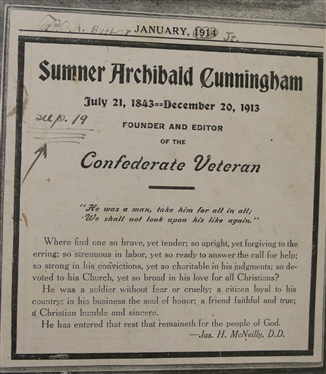 JANUARY, 1914 Jr.
Sumner Archibald Cunningham
July 21, 1843==December 20, 1913
FOUNDER AND EDITOR
OF THE
Confederate Veteran
see p. 19
"He was a man, take him for all in all;
We shall not look upon his like again."
Where find one so brave, yet tender; so upright, yet forgiving to the
erring; so strenuous in labor, yet so ready to answer the call for help;
so strong in his convictions, yet so charitable in his judgments; so de-
voted to his Church, yet so broad in his love for all Christians?
He was a soldier without fear or cruelty; a citizen loyal to his
country; in his business the soul of honor; a friend faithful and true;
a Christian humble and sincere.
He has entered that rest that remaineth for the people of God.
—Jas. H. McNeilly, D.D.